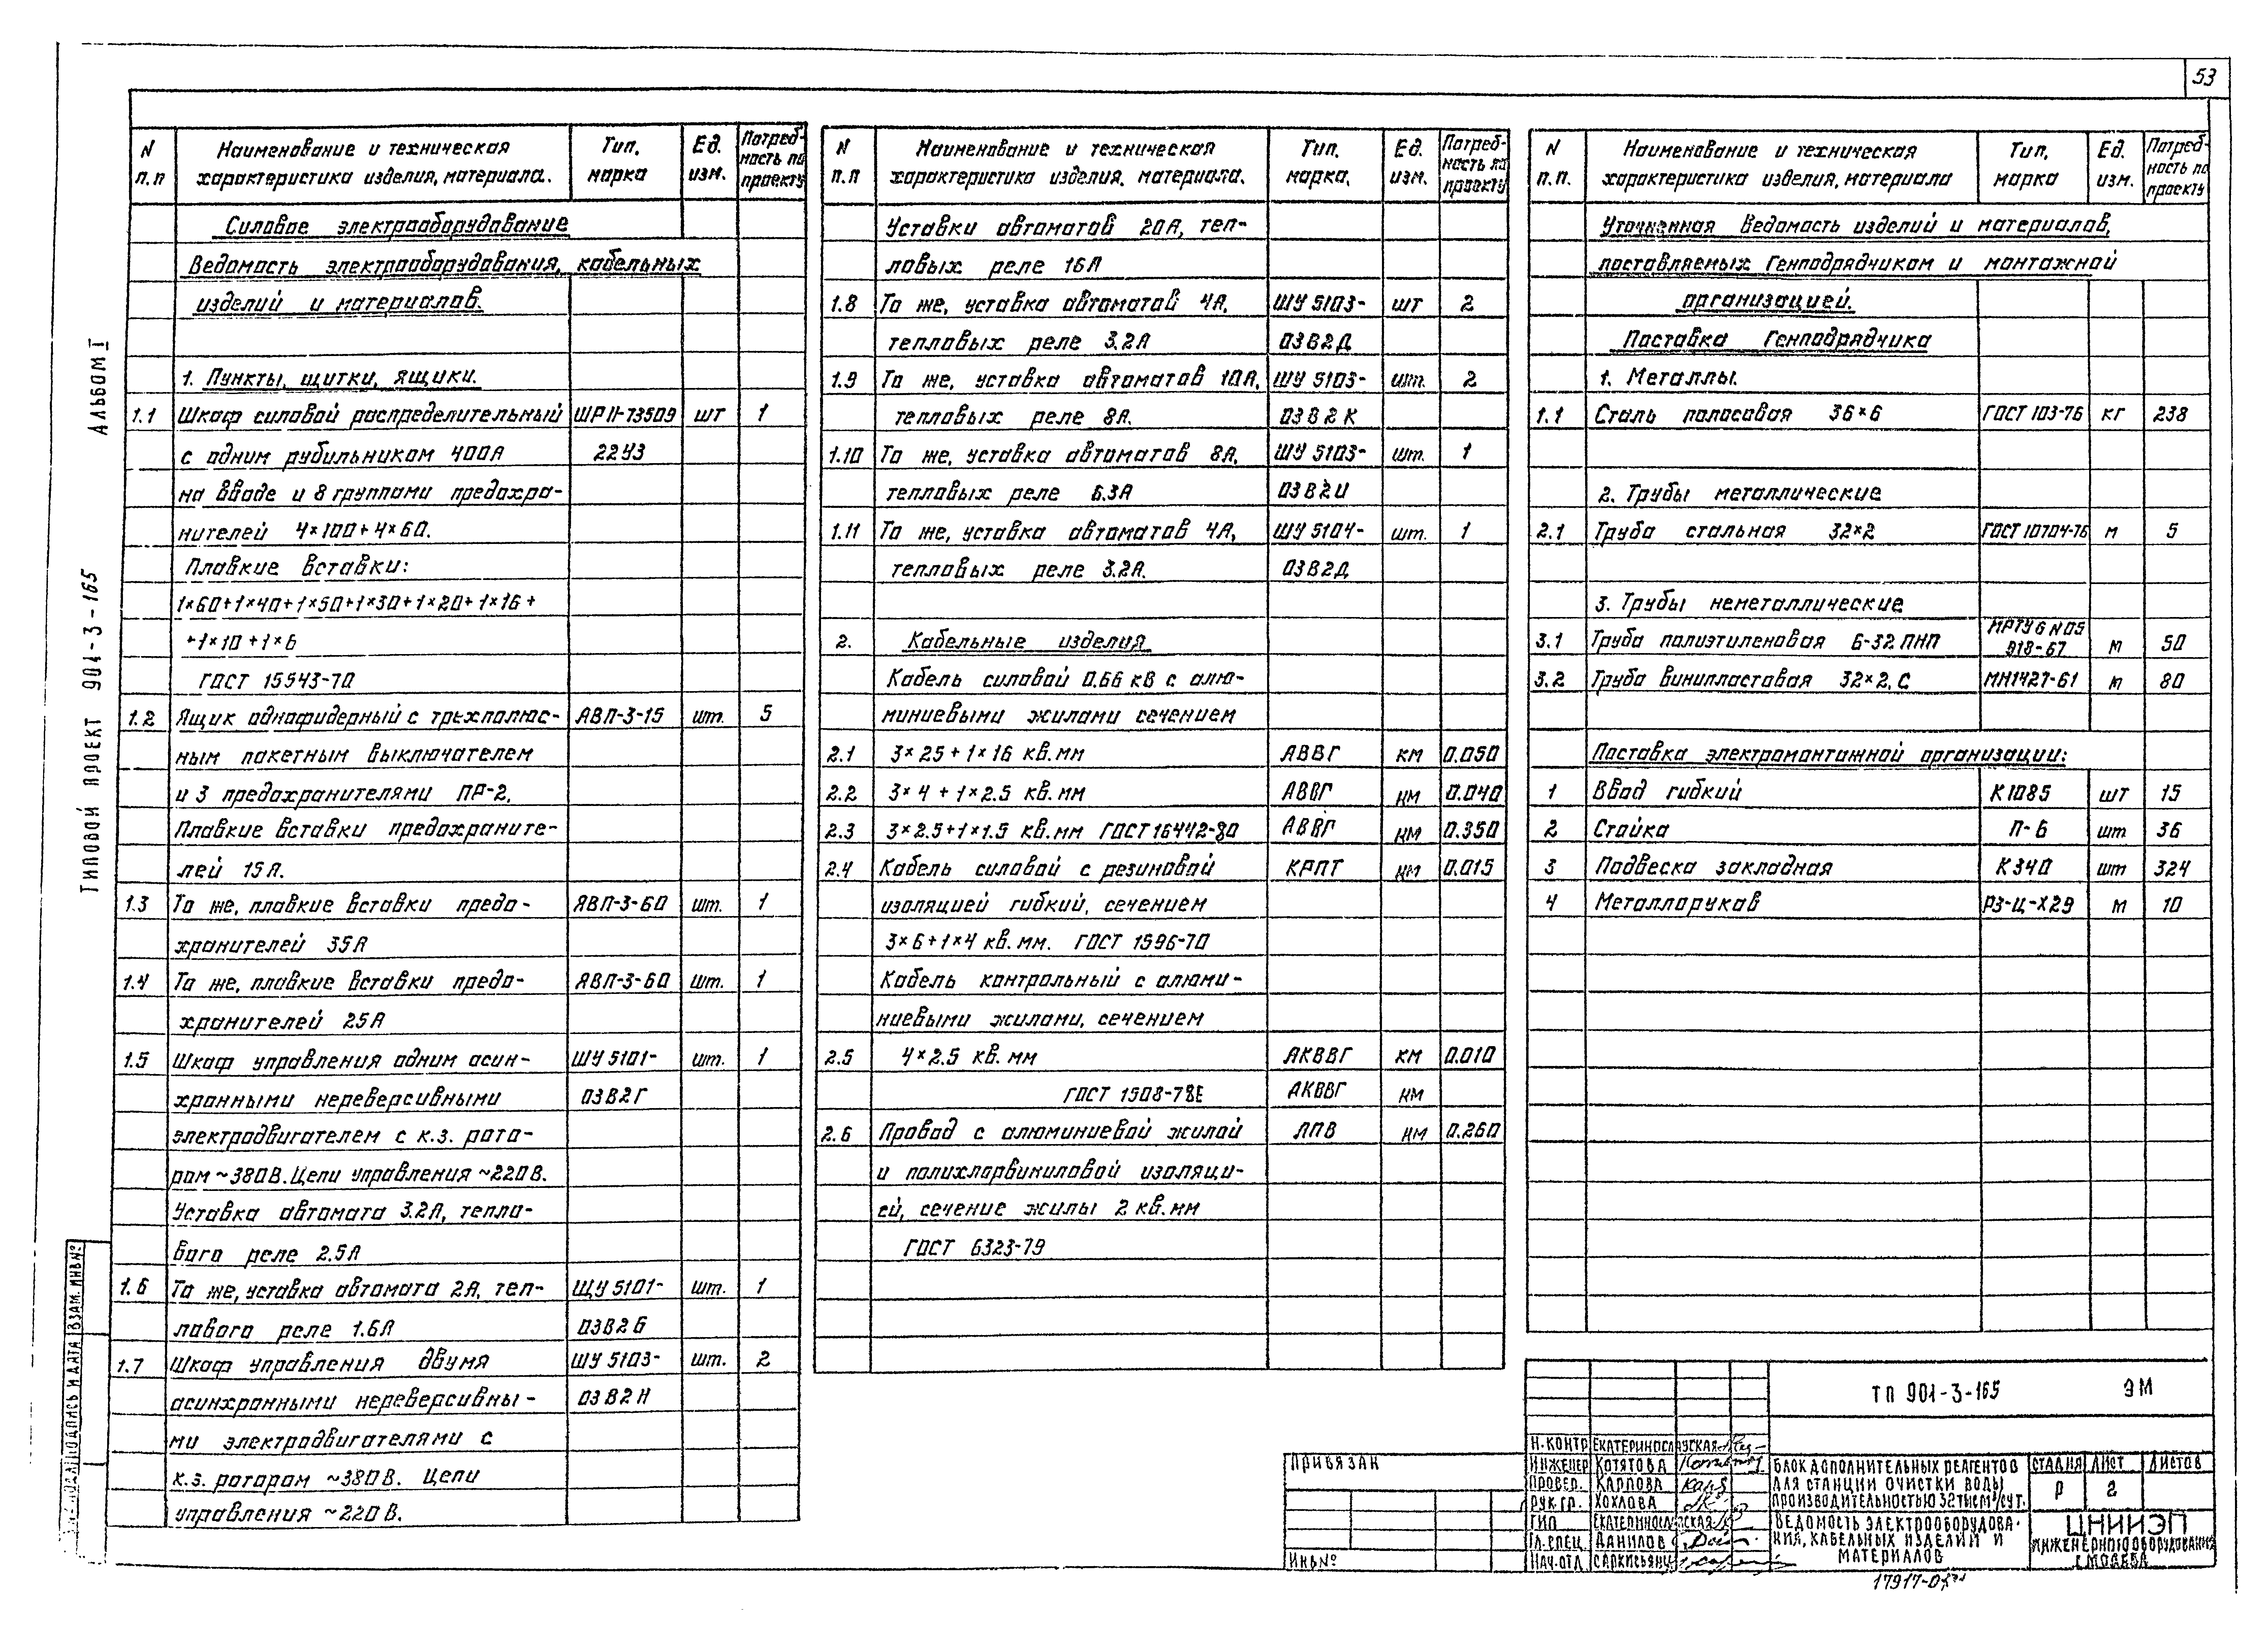 53
АЛЬБОМ I
ТИПОВОЙ ПРОЕКТ 901-3-165
N п.п
Наименование и техническая характеристика изделия, материала.
Тип, марка
Ед. изм.
Потреб-ность по проекту
Силовое электрооборудование
Ведомость электрооборудования, кабельных
изделий и материалов.
1. Пункты, щитки, ящики.
1.1 Шкаф силовой распределительный ШР11-73509 шт 1
с одним рубильником 400А 22У3
на вводе и 8 группами предохра-
нителей 4×100+4×60.
Плавкие вставки:
1×60+1×40+1×50+1×30+1×20+1×16+
+1×10+1×6
ГОСТ 15543-70
1.2 Ящик однофидерный с трехполюс- АВП-3-15 шт. 5
ным пакетным выключателем
и 3 предохранителями ПР-2,
Плавкие вставки предохраните-
лей 15А.
1.3 То же, плавкие вставки предо- ЯВП-3-60 шт. 1
хранителей 35А
1.4 То же, плавкие вставки предо- ЯВП-3-60 шт. 1
хранителей 25А
1.5 Шкаф управления одним асин- ШУ 5101- шт. 1
хронными нереверсивными 03В2Г
электродвигателем с к.з. рото-
ром ~380В. Цепи управления ~220В.
Уставка автомата 3.2А, тепло-
вого реле 2.5А
1.6 То же, уставка автомата 2А, теп- ШУ 5101- шт. 1
лового реле 1.6А 03В2Б
1.7 Шкаф управления двумя ШУ 5103- шт. 2
асинхронными нереверсивны- 03В2Н
ми электродвигателями с
к.з. ротором ~380В. Цепи
управления ~220В.
N п.п
Наименование и техническая характеристика изделия, материала.
Тип, марка.
Ед. изм.
Потреб-ность по проекту
Уставки автоматов 20А, теп-
ловых реле 16А
1.8 То же, уставка автоматов 4А, ШУ 5103- шт 2
тепловых реле 3.2А 03В2Д
1.9 То же, уставка автоматов 10А, ШУ 5103- шт. 2
тепловых реле 8А. 03В2К
1.10 То же, уставка автоматов 8А, ШУ 5103- шт. 1
тепловых реле 6.3А 03В2И
1.11 То же, уставка автоматов 4А, ШУ 5104- шт. 1
тепловых реле 3.2А. 03В2Д
2. Кабельные изделия
Кабель силовой 0,66 кВ с алю-
миниевыми жилами сечением
2.1 3×25+1×16 кв.мм АВВГ км 0.050
2.2 3×4+1×2.5 кв.мм АВВГ км 0.040
2.3 3×2.5+1×1.5 кв.мм ГОСТ 16442-80 АВВГ км 0.350
2.4 Кабель силовой с резиновой КРПТ км 0.015
изоляцией гибкий, сечением
3×6+1×4 кв.мм. ГОСТ 1596-70
Кабель контрольный с алюми-
ниевыми жилами, сечением
2.5 4×2.5 кв.мм АКВВГ км 0.010
ГОСТ 1508-78Е АКВВГ км
2.6 Провод с алюминиевой жилой АПВ км 0.260
и полихлорвиниловой изоляци-
ей, сечение жилы 2 кв.мм
ГОСТ 6323-79
N п.п.
Наименование и техническая характеристика изделия, материала
Тип, марка
Ед. изм.
Потреб-ность по проекту
Уточненная Ведомость изделий и материалов,
поставляемых Генподрядчиком и монтажной
организацией.
Поставка Генподрядчика
1. Металлы.
1.1 Сталь полосовая 36×6 ГОСТ 103-76 кг 238
2. Трубы металлические
2.1 Труба стальная 32×2 ГОСТ 10704-76 м 5
3. Трубы неметаллические
3.1 Труба полиэтиленовая Б-32 ПНП МРТУ 6 N 05 918-67 м 50
3.2 Труба винипластовая 32×2,С МН1427-61 м 80
Поставка электромонтажной организации:
1 Ввод гибкий К1085 шт 15
2 Стойка П-6 шт 36
3 Подвеска закладная К340 шт 324
4 Металлорукав РЗ-Ц-Х29 м 10
ВЗАМ. ИНВ №
ПОДПИСЬ И ДАТА
ПРИВЯЗАН
ИНВ №
ТП 901-3-165 ЭМ
Н.КОНТР ЕКАТЕРИНОСЛАВСКАЯ
ИНЖЕНЕР КОТЯТОВА
ПРОВЕР. КАРПОВА
РУК.ГР. ХОХЛОВА
ГИП ЕКАТЕРИНОСЛАВСКАЯ
ГЛ.СПЕЦ. ДАНИЛОВ
НАЧ.ОТД САРКИСЬЯНЦ
БЛОК ДОПОЛНИТЕЛЬНЫХ РЕАГЕНТОВ
ДЛЯ СТАНЦИИ ОЧИСТКИ ВОДЫ
ПРОИЗВОДИТЕЛЬНОСТЬЮ 32 ТЫС М³/СУТ.
СТАДИЯ ЛИСТ ЛИСТОВ
Р 2
ВЕДОМОСТЬ ЭЛЕКТРООБОРУДОВА-
НИЯ, КАБЕЛЬНЫХ ИЗДЕЛИЙ И
МАТЕРИАЛОВ
ЦНИИЭП
ИНЖЕНЕРНОГО ОБОРУДОВАНИЯ
Г. МОСКВА
17917-01